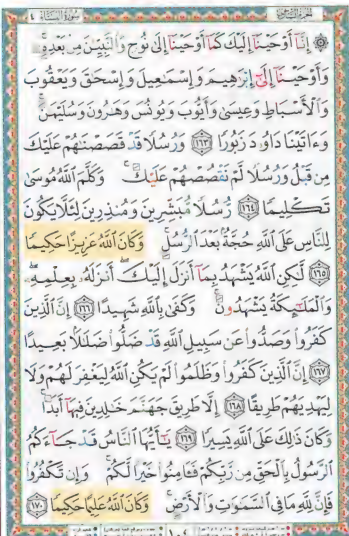 سورة النساء ٤
إِنَّا أَوْحَيْنَا إِلَيْكَ كَمَا أَوْحَيْنَا إِلَىٰ نُوحٍ وَالنَّبِيِّينَ مِن بَعْدِهِ
وَأَوْحَيْنَا إِلَىٰ إِبْرَاهِيمَ وَإِسْمَاعِيلَ وَإِسْحَاقَ وَيَعْقُوبَ
وَالْأَسْبَاطِ وَعِيسَىٰ وَأَيُّوبَ وَيُونُسَ وَهَارُونَ وَسُلَيْمَانَ
وَءَاتَيْنَا دَاوُودَ زَبُورًا ١٦٣ وَرُسُلًا قَدْ قَصَصْنَاهُمْ عَلَيْكَ
مِن قَبْلُ وَرُسُلًا لَّمْ نَقْصُصْهُمْ عَلَيْكَ وَكَلَّمَ اللَّهُ مُوسَىٰ
تَكْلِيمًا ١٦٤ رُّسُلًا مُّبَشِّرِينَ وَمُنذِرِينَ لِئَلَّا يَكُونَ
لِلنَّاسِ عَلَى اللَّهِ حُجَّةٌ بَعْدَ الرُّسُلِ وَكَانَ اللَّهُ عَزِيزًا حَكِيمًا
١٦٥ لَّٰكِنِ اللَّهُ يَشْهَدُ بِمَا أَنزَلَ إِلَيْكَ أَنزَلَهُ بِعِلْمِهِ
وَالْمَلَائِكَةُ يَشْهَدُونَ وَكَفَىٰ بِاللَّهِ شَهِيدًا ١٦٦ إِنَّ الَّذِينَ
كَفَرُوا وَصَدُّوا عَن سَبِيلِ اللَّهِ قَدْ ضَلُّوا ضَلَالًا بَعِيدًا
١٦٧ إِنَّ الَّذِينَ كَفَرُوا وَظَلَمُوا لَمْ يَكُنِ اللَّهُ لِيَغْفِرَ لَهُمْ وَلَا
لِيَهْدِيَهُمْ طَرِيقًا ١٦٨ إِلَّا طَرِيقَ جَهَنَّمَ خَالِدِينَ فِيهَا أَبَدًا
وَكَانَ ذَٰلِكَ عَلَى اللَّهِ يَسِيرًا ١٦٩ يَا أَيُّهَا النَّاسُ قَدْ جَاءَكُمُ
الرَّسُولُ بِالْحَقِّ مِن رَّبِّكُمْ فَآمِنُوا خَيْرًا لَّكُمْ وَإِن تَكْفُرُوا
فَإِنَّ لِلَّهِ مَا فِي السَّمَاوَاتِ وَالْأَرْضِ وَكَانَ اللَّهُ عَلِيمًا حَكِيمًا ١٧٠
١٠٤